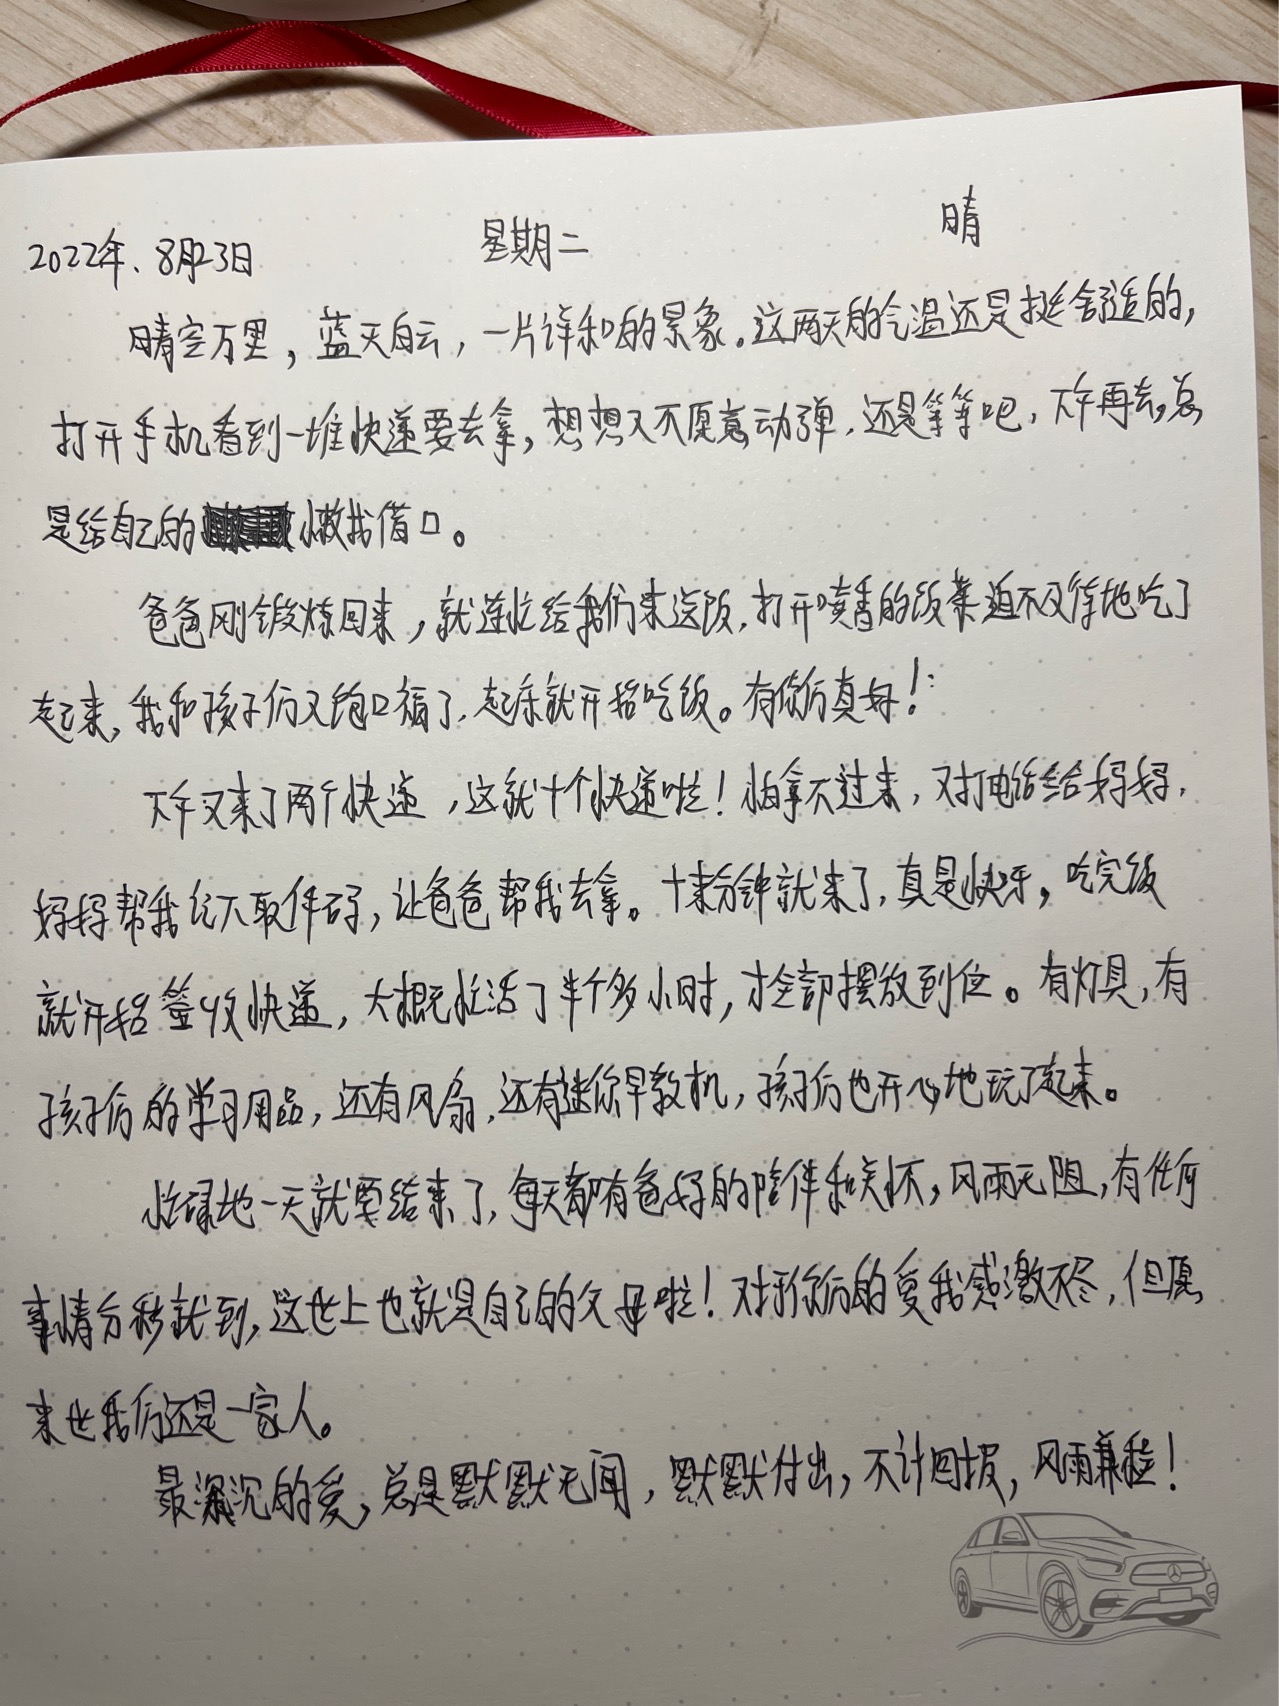 2022年、8月23日 星期二 晴
晴空万里，蓝天白云，一片详和的景象。这两天的气温还是挺舒适的，
打开手机看到一堆快递要去拿，想想又不愿意动弹，还是等等吧，下午再去，总
是给自己的懒找借口。
爸爸刚锻炼回来，就连忙给我们来送饭，打开喷香的饭菜迫不及待地吃了
起来，我和孩子们又饱口福了，起床就开始吃饭。有你们真好！
下午又来了两个快递，这就十个快递啦！怕拿不过来，又打电话给妈妈，
妈妈帮我记下取件码，让爸爸帮我去拿。十来分钟就来了，真是快呀。吃完饭
就开始签收快递，大概忙活了半个多小时，才全部摆放到位。有灯具，有
孩子们的学习用品，还有风扇，还有迷你早教机，孩子们也开心地玩了起来。
忙碌地一天就要结束了，每天都有爸妈的陪伴和关怀，风雨无阻，有任何
事情分秒就到，这世上也就是自己的父母啦！对于你们的爱我感激不尽，但愿
来世我们还是一家人。
最深沉的爱，总是默默无闻，默默付出，不计回报，风雨兼程！